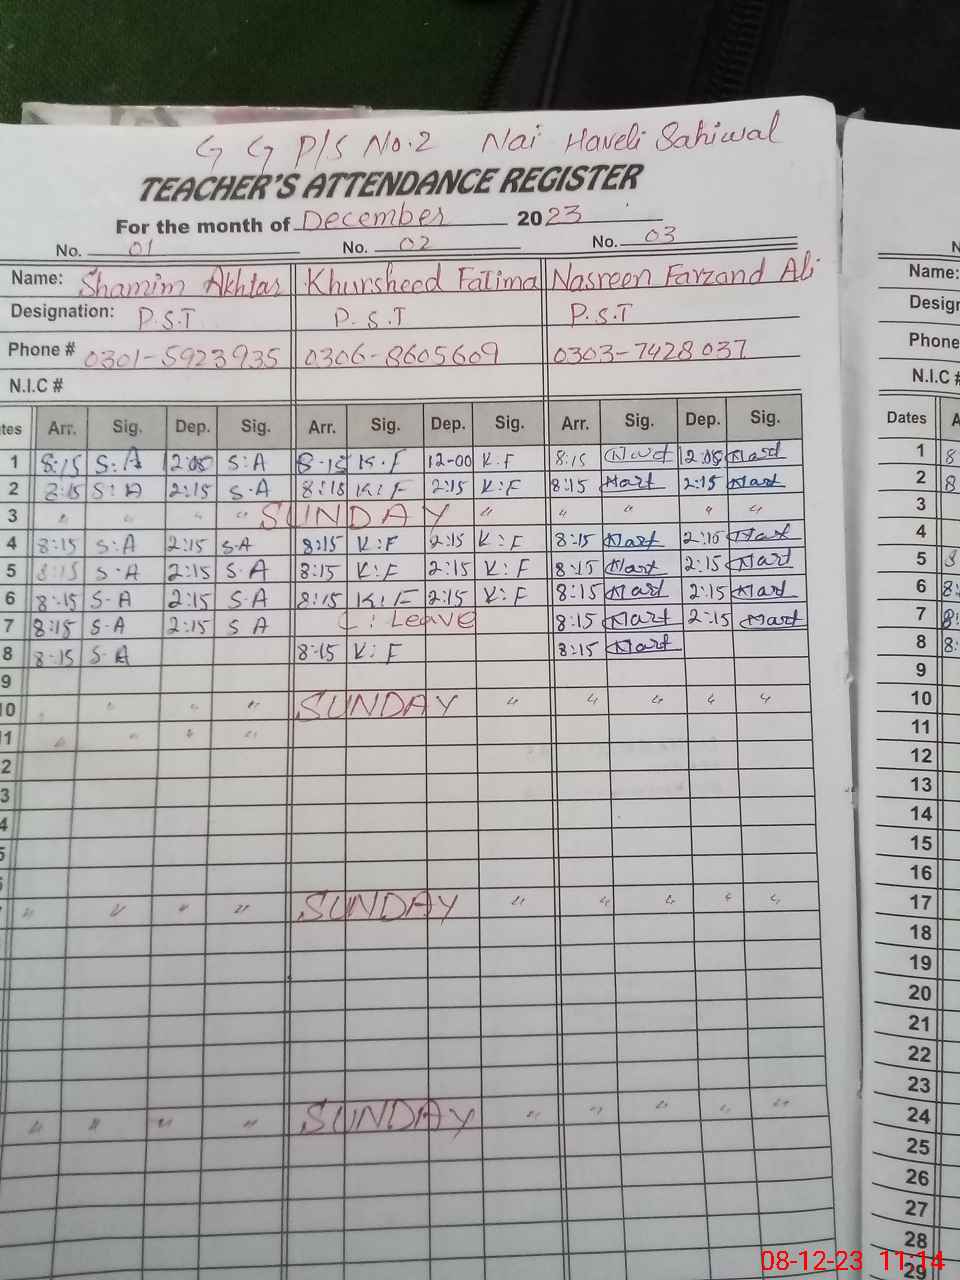 G G P/S No.2 Nai Haveli Sahiwal
TEACHER'S ATTENDANCE REGISTER
For the month of December 2023
No. 01 No. 02 No. 03
Name: Shamim Akhtar Khursheed Fatima Nasreen Farzand Ali
Designation: P.S.T P.S.T P.S.T
Phone # 0301-5923935 0306-8605609 0303-7428037
N.I.C #
tes Arr. Sig. Dep. Sig. Arr. Sig. Dep. Sig. Arr. Sig. Dep. Sig.
1 8:15 S:A S:A 8-15 K.F 12-00 K.F 8:15
2 8:15 S:A 2:15 S.A 8:18 K:F 2:15 K:F 8:15 2:15
3 " " " " SUNDAY " " " " "
4 8:15 S:A 2:15 S.A 8:15 K:F 2:15 K:F 8:15 2:15
5 8:15 S.A 2:15 S.A 8:15 K:F 2:15 K:F 8:15 2:15
6 8:15 S-A 2:15 S.A 8:15 K:F 2:15 K:F 8:15 2:15
7 8:15 S-A 2:15 S A C:Leave 8:15 2:15
8 8-15 S-A 8:15 K:F 8:15
9
10 " " " SUNDAY " " " " "
11 " " " "
2
3
4
5
" " " " SUNDAY " " " " "
" " " " SUNDAY " " " " "
N
Name:
Design
Phone
N.I.C #
Dates A
1 8
2 8
3
4
5 8
6 8:
7 8:
8 8:
9
10
11
12
13
14
15
16
17
18
19
20
21
22
23
24
25
26
27
28
29
08-12-23 11:14